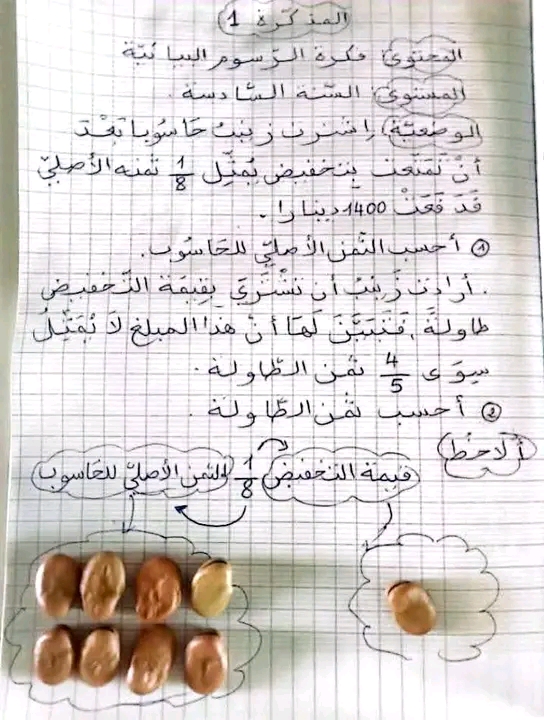 المذكرة 1
المحتوى فكرة الرّسوم البيانيّة
المستوى السّنة السّادسة.
الوضعيّة اِشترت زينبُ حَاسُوبا بَعْدَ
أنْ تمتّعت بتخفيض يُمثّل 1/8 ثمنه الأصليّ
فدَفَعَتْ 1400 دينارا.
① أحسب الثّمن الأصليّ للحَاسُوب.
. أرادت زَينَبُ أن تشْتَرِيَ بِقِيمَة التّخفيض
طاولةً، فَتَبَيَّنَ لَهَا أنّ هَذا المبلغ لَا يُمَثِّلُ
سِوَى 4/5 ثمَن الطّاولة.
② أحسب ثمَن الطّاولة.
ألاحظ
قيمة التخفيض 1/8 الثمن الأصليّ للحَاسوب